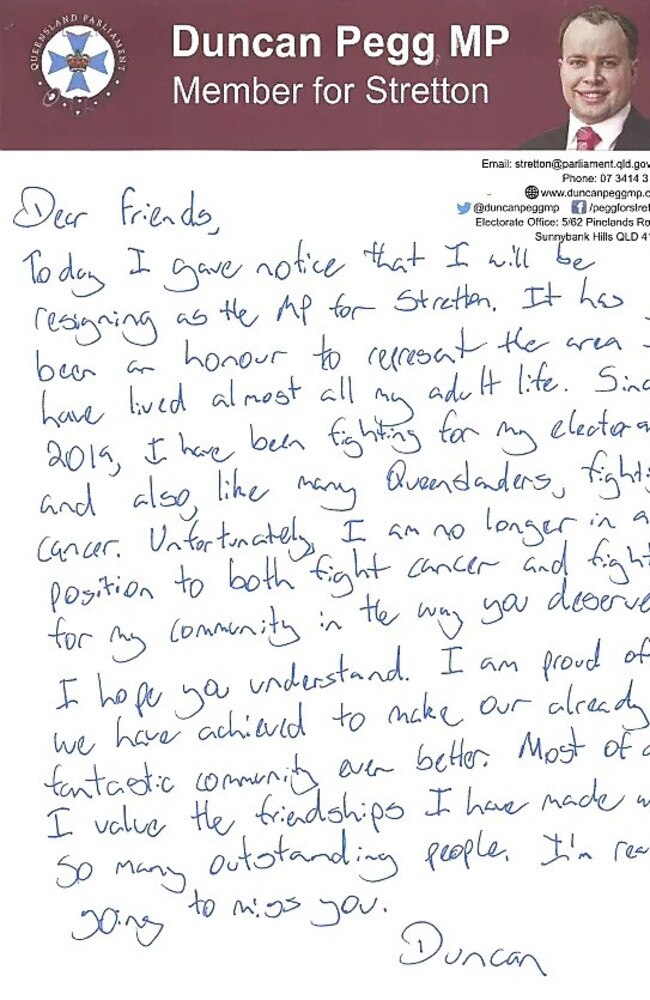 QUEENSLAND PARLIAMENT
Duncan Pegg MP
Member for Stretton
Email: stretton@parliament.qld.gov
Phone: 07 3414 3
www.duncanpeggmp.c
@duncanpeggmp /peggforstret
Electorate Office: 5/62 Pinelands Ro
Sunnybank Hills QLD 41
Dear Friends,
Today I gave notice that I will be
resigning as the MP for Stretton. It has
been an honour to represent the area
have lived almost all my adult life. Sinc
2019, I have been fighting for my electora
and also, like many Queenslanders, fighti
cancer. Unfortunately, I am no longer in a
position to both fight cancer and fight
for my community in the way you deserve
I hope you understand. I am proud of
we have achieved to make our already
fantastic community even better. Most of a
I value the friendships I have made w
so many outstanding people. I'm rea
going to miss you.
Duncan